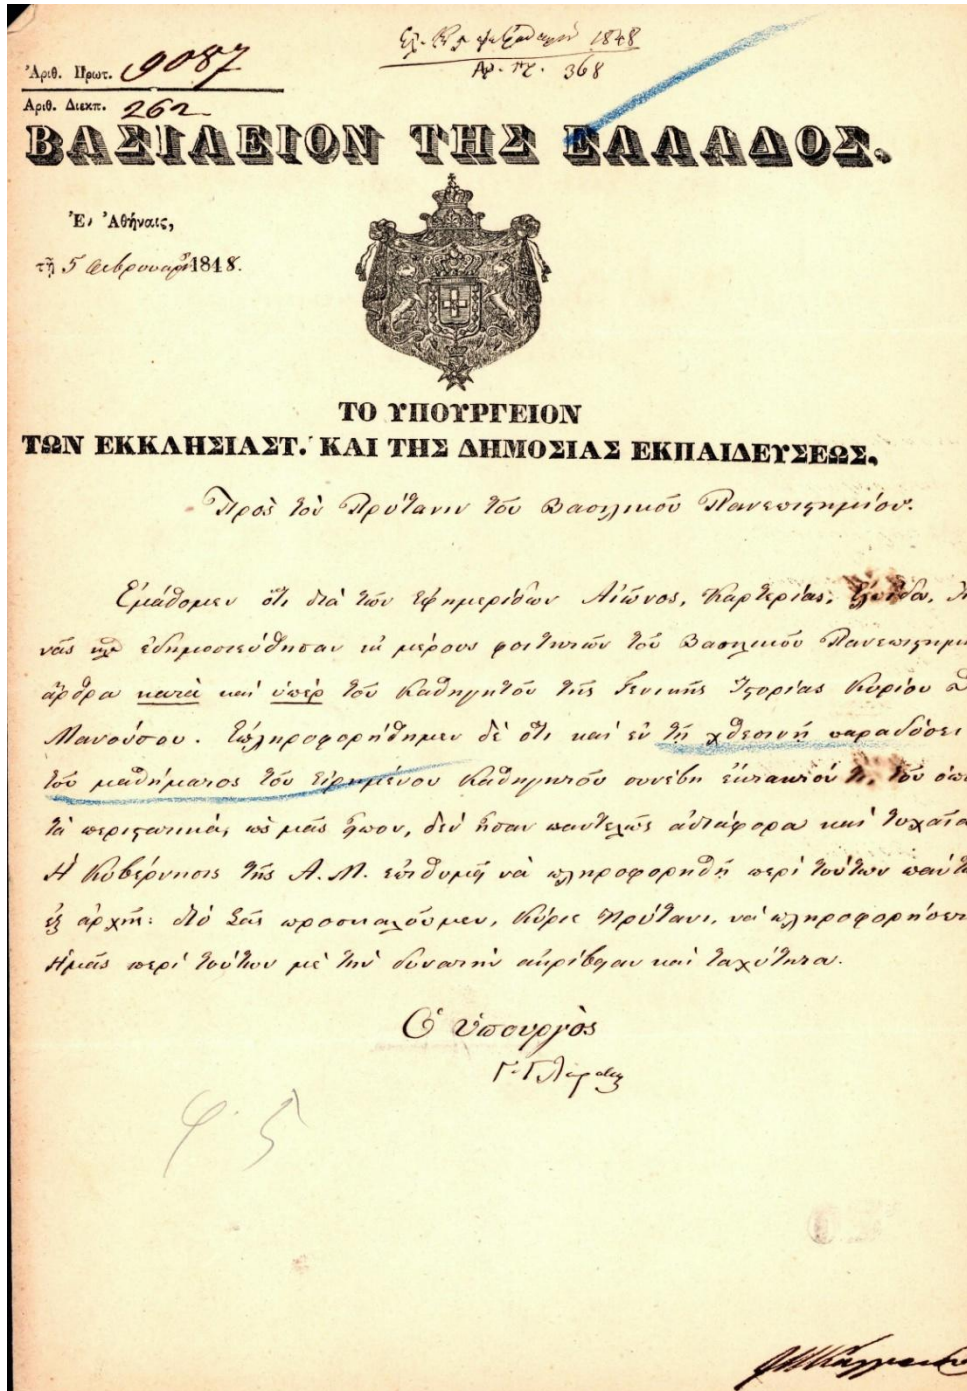 1848
Ἀρ. πρ. 368
Ἀριθ. Πρωτ. 9087
Ἀριθ. Διεκπ. 262
ΒΑΣΙΛΕΙΟΝ ΤΗΣ ΕΛΛΑΔΟΣ.
Ἐν Ἀθήναις,
τῇ 5 Φεβρουαρίου 1848.
ΤΟ ΥΠΟΥΡΓΕΙΟΝ
ΤΩΝ ΕΚΚΛΗΣΙΑΣΤ. ΚΑΙ ΤΗΣ ΔΗΜΟΣΙΑΣ ΕΚΠΑΙΔΕΥΣΕΩΣ.
Πρὸς τὸν Πρύτανιν τοῦ Βασιλικοῦ Πανεπιστημίου.
Ἐμάθομεν ὅτι διὰ τῶν Ἐφημερίδων Αἰῶνος, Καρτερίας, Ἐλπίδος,
ἐδημοσιεύθησαν ἐκ μέρους φοιτητῶν τοῦ Βασιλικοῦ Πανεπιστημ
ἄρθρα κατὰ καὶ ὑπὲρ τοῦ Καθηγητοῦ τῆς Γενικῆς Ἱστορίας Κυρίου
Μανούσου. Ἐπληροφορήθημεν δὲ ὅτι καὶ ἐν τῇ χθεσινῇ παραδόσει
τοῦ μαθήματος τοῦ εἰρημένου Καθηγητοῦ συνέβη ἔκτακτόν τι, τοῦ ὁπ
τὰ περιστατικά, ὡς μᾶς εἶπον, δὲν ἦσαν παντελῶς ἀδιάφορα καὶ τυχαῖα
Ἡ Κυβέρνησις τῆς Α. Μ. ἐπιθυμεῖ νὰ πληροφορηθῇ περὶ τούτων πάντ
ἐξ ἀρχῆς: διὸ Σᾶς προσκαλοῦμεν, Κύριε Πρύτανι, νὰ πληροφορήσετ
Ἡμᾶς περὶ τούτων μὲ τὴν δυνατὴν ἀκρίβειαν καὶ ταχύτητα.
Ὁ Ὑπουργὸς
Γ. Γλαράκης
φ. 5